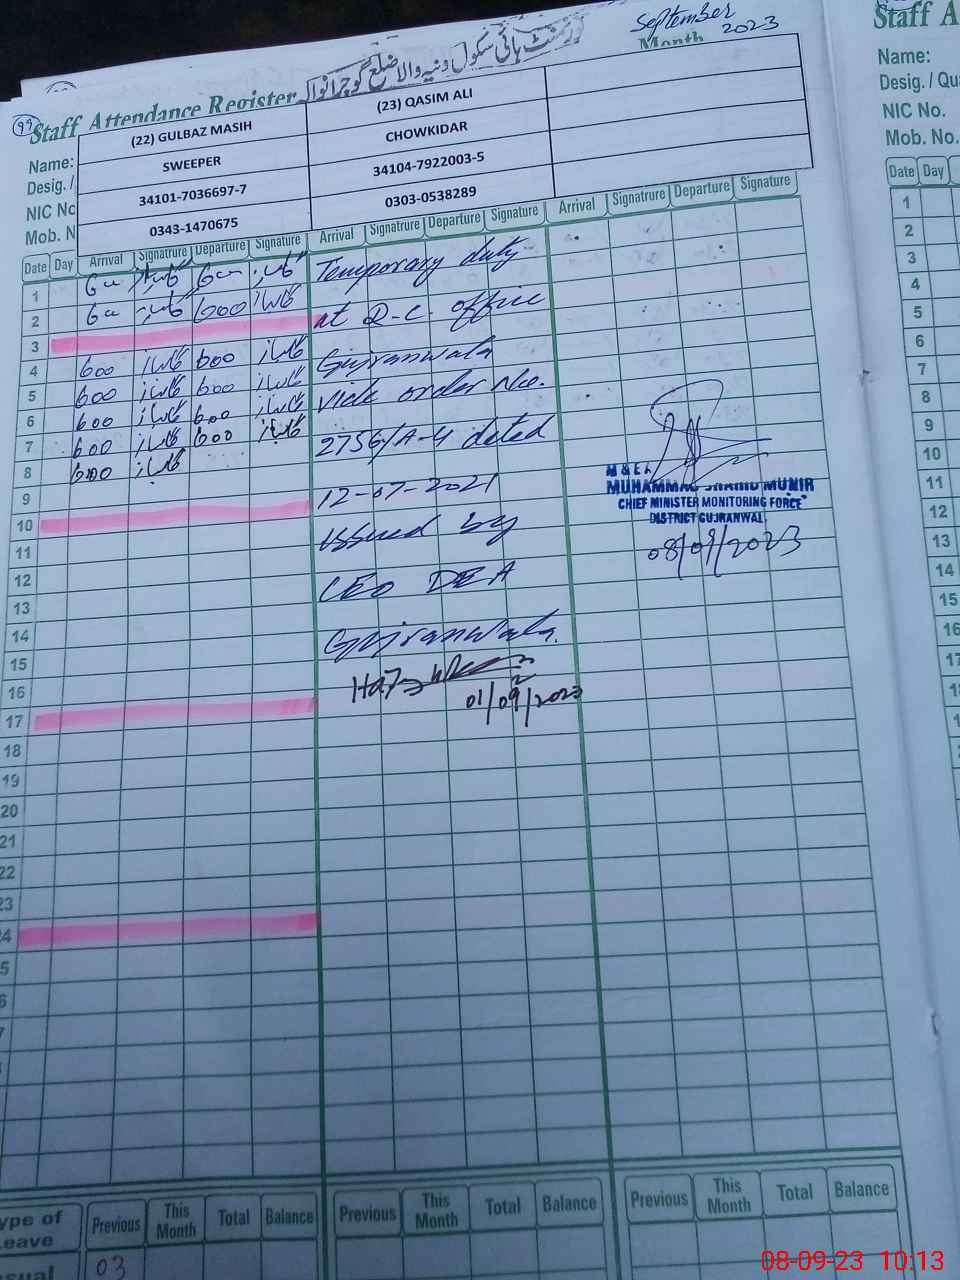 September
2023
Month
گورنمنٹ ہائی سکول ونیہ والا ضلع گوجرانوالہ
99
Staff Attendance Register
Name:
Desig. /
NIC No
Mob. N
(22) GULBAZ MASIH
SWEEPER
34101-7036697-7
0343-1470675
(23) QASIM ALI
CHOWKIDAR
34104-7922003-5
0303-0538289
Date Day Arrival Signatrure Departure Signature Arrival Signatrure Departure Signature Arrival Signatrure Departure Signature
1 600 گلباز 600 گلباز
2 600 گلباز 600 گلباز
3
4 600 گلباز 600 گلباز
5 600 گلباز 600 گلباز
6 600 گلباز 600 گلباز
7 600 گلباز 600 گلباز
8 600 گلباز
9
10
11
12
13
14
15
16
17
18
19
20
21
22
23
24
5
6
7
Temporary duty
at D.C. office
Gujranwala
vide order No.
2756/A-4 dated
12-07-2021
issued by
CEO DEA
Gujranwala.
01/09/2023
M & EA
MUHAMMAD SHAHID MUNIR
CHIEF MINISTER MONITORING FORCE
DISTRICT GUJRANWAL
08/09/2023
ype of
eave
Previous This Month Total Balance
Previous This Month Total Balance
Previous This Month Total Balance
sual 03
Staff A
Name:
Desig. / Qua
NIC No.
Mob. No.
Date Day
1
2
3
4
5
6
7
8
9
10
11
12
13
14
15
16
17
1
08-09-23 10:13